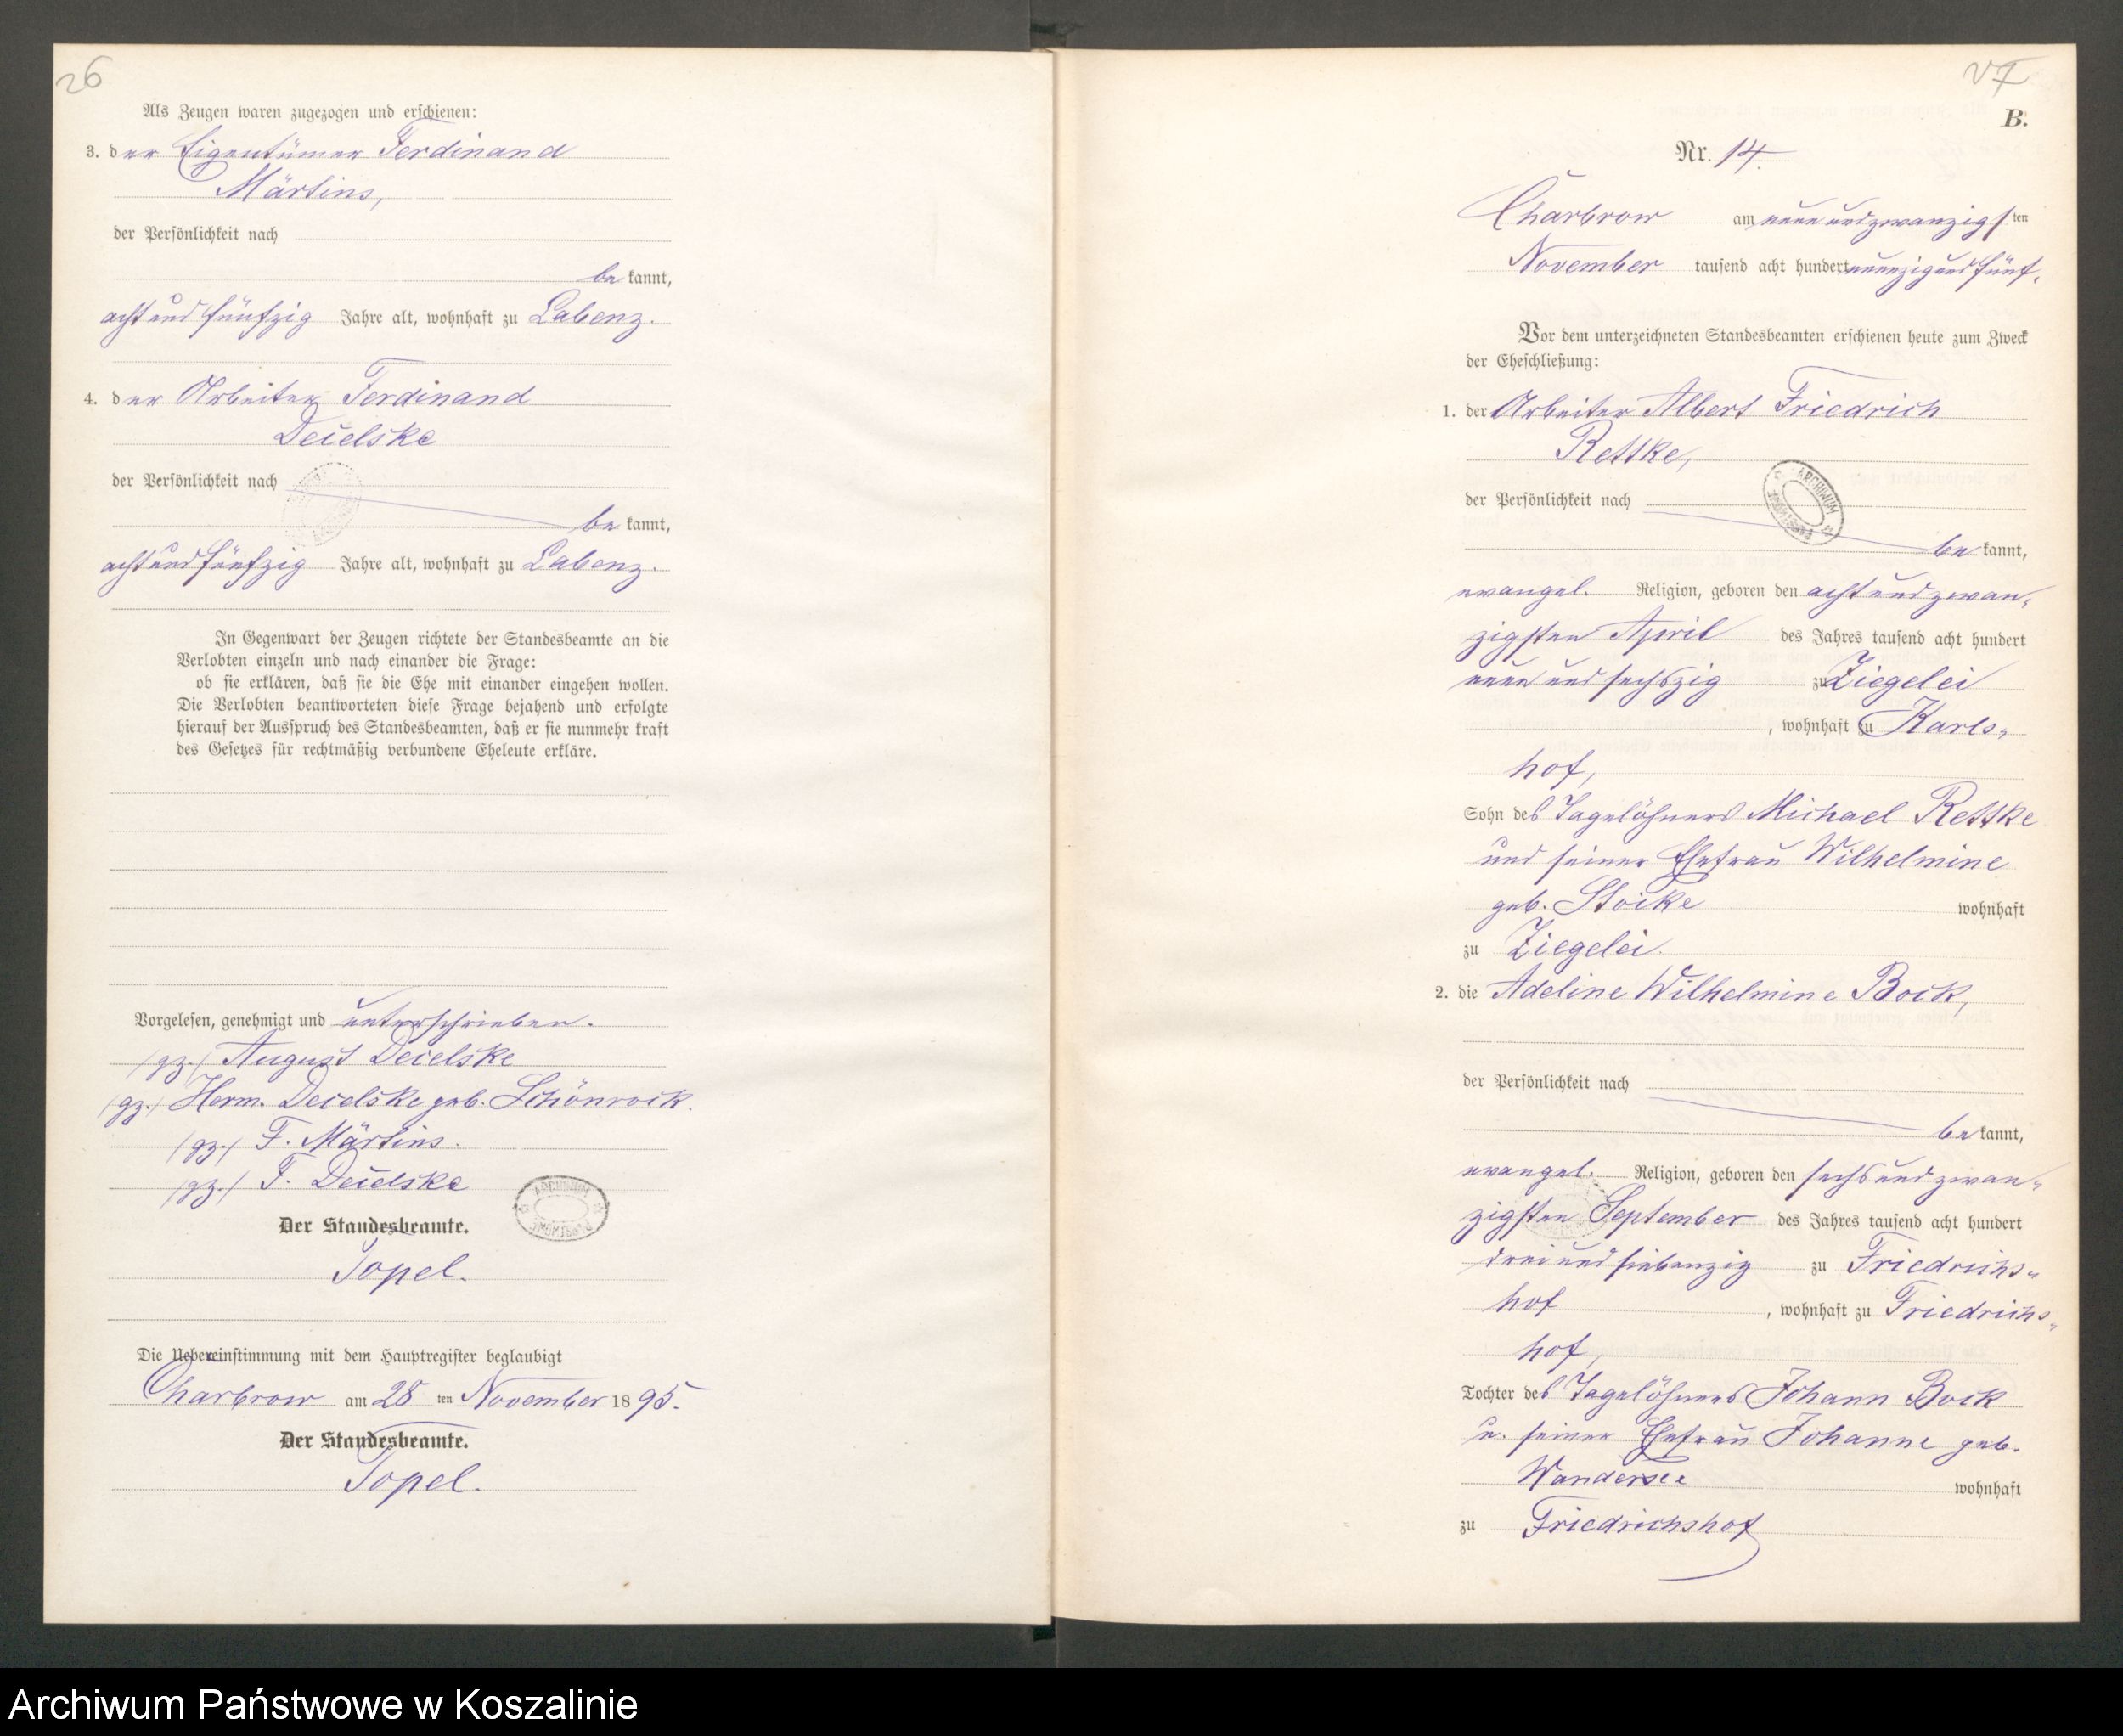 26
Als Zeugen waren zugezogen und erschienen:
3. der Eigentümer Ferdinand
Märtins,
der Persönlichkeit nach
be kannt,
acht und fünfzig Jahre alt, wohnhaft zu Labenz.
4. der Arbeiter Ferdinand
Deielske
der Persönlichkeit nach
be kannt,
acht und fünfzig Jahre alt, wohnhaft zu Labenz.
In Gegenwart der Zeugen richtete der Standesbeamte an die
Verlobten einzeln und nach einander die Frage:
ob sie erklären, daß sie die Ehe mit einander eingehen wollen.
Die Verlobten beantworteten diese Frage bejahend und erfolgte
hierauf der Ausspruch des Standesbeamten, daß er sie nunmehr kraft
des Gesetzes für rechtmäßig verbundene Eheleute erkläre.
Vorgelesen, genehmigt und unterschrieben.
/gz./ August Deielske
/gz./ Herm. Deielske geb. Schönrock.
/gz./ F. Märtins.
/gz./ F. Deielske
Der Standesbeamte.
Topel.
Die Uebereinstimmung mit dem Hauptregister beglaubigt
Charbrow am 28 ten November 1895.
Der Standesbeamte.
Topel.
27
B.
Nr. 14.
Charbrow am neun und zwanzigsten
November tausend acht hundert neunzig und fünf.
Vor dem unterzeichneten Standesbeamten erschienen heute zum Zweck
der Eheschließung:
1. der Arbeiter Albert Friedrich
Rettke,
der Persönlichkeit nach
ARCHIWUM
be kannt,
evangel. Religion, geboren den acht und zwan-
zigsten April des Jahres tausend acht hundert
neun und sechszig zu Ziegelei
, wohnhaft zu Karls-
hof,
Sohn des Tagelöhners Michael Rettke
und seiner Ehefrau Wilhelmine
geb. Stoike wohnhaft
zu Ziegelei.
2. die Adeline Wilhelmine Bock,
der Persönlichkeit nach
be kannt,
evangel. Religion, geboren den sechs und zwan-
zigsten September des Jahres tausend acht hundert
drei und siebenzig zu Friedrichs-
hof , wohnhaft zu Friedrichs-
hof,
Tochter des Tagelöhners Johann Bock
u. seiner Ehefrau Johanne geb.
Wandersee wohnhaft
zu Friedrichshof
Archiwum Państwowe w Koszalinie